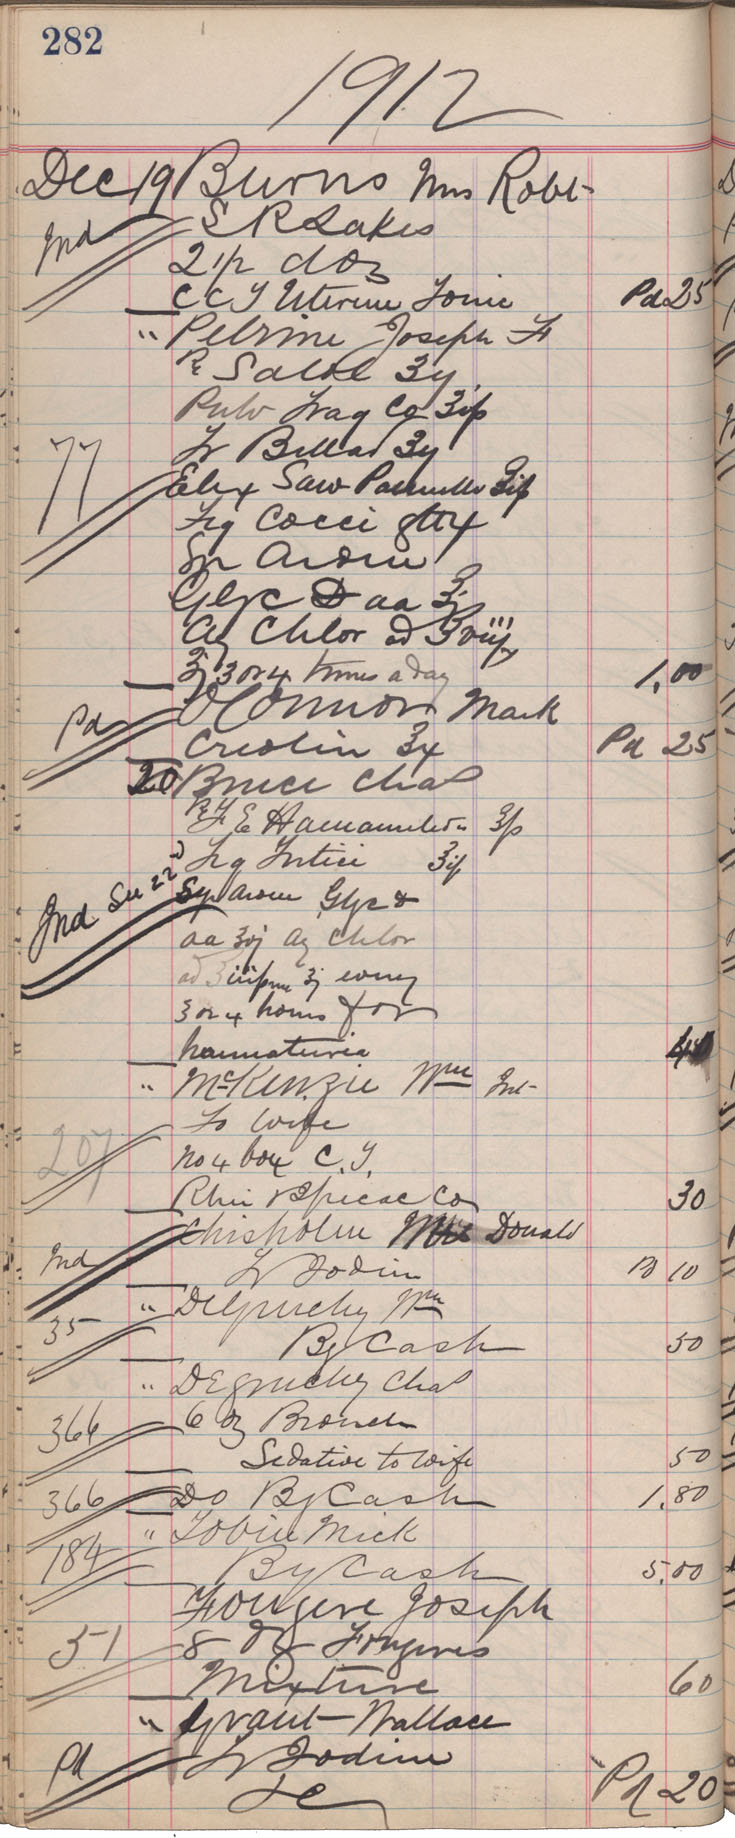 282
1912
Dec 19 Burns Mrs Robt
Ind S R Lakes
2 ip doz
C C T Uterine Tonic Pd 25
" Petrine Joseph F
Rx Salol ʒy
Pulv Trag Co ʒip
77 Tr Bellad ʒy
Elix Saw Palmetto ʒip
Ergot Cocci gtt x
Sy Arom
Glyc aa ℥j
Aq Chlor ad ℥viij
ʒj 3 or 4 times a day 1.00
Pd O'Connor Mark
Creolin ʒx Pd 25
20 Bruce Chas
Rx F E Hamamelis ʒp
ʒip
Ind See 22d Syr Arom Glyc &
aa ʒvj Aq Chlor
ad ʒj every
3 or 4 hours for
haematuria 40
" McKenzie Wm Ind
207 To Wife
No 4 box C. T.
Rhei & Ipecac Co 30
Chisholm Donald
Ind Tr Iodine Pd 10
" DeGruchy Wm
35 By Cash 50
" DeGruchy Chas
366 6 oz Bronch
Sedative to Wife 50
366 Do By Cash 1.80
" Tobin Mick
184 By Cash 5.00
Fougere Joseph
51 8 oz Fougeres
Mixture 60
" Grant Wallace
Pd Tr Iodine
Pd 20